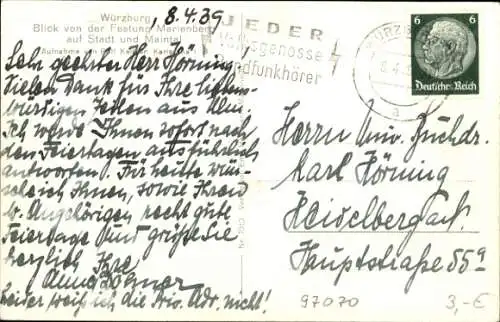 Würzburg
Blick von der Festung Marienberg
auf Stadt und Maintal
8.4.39
JEDER
Volksgenosse
Rundfunkhörer
6 6
Deutsches Reich
Sehr geehrter Herr Hörning!
Vielen Dank für Ihre liebens-
würdigen Zeilen aus
Ich werde Ihnen sofort nach
den Feiertagen ausführlich
antworten. Für heute wün-
sche ich Ihnen, sowie Ihren
w. Angehörigen recht gute
Feiertage und grüße Sie
herzlich Ihre
Anna
Leider weiß ich die Priv. Adr. nicht!
Herrn Univ. Buchdr.
Karl Hörning
Heidelberg
Hauptstraße 55a
97070
3,-€